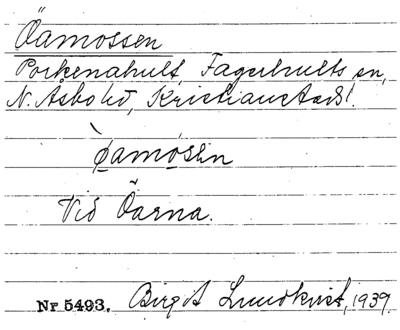 Öamossen
Porkenahult, Fagerhults sn,
N. Åsbo hd, Kristianstads l.
òamosen
Vid Öarna.
Nr 5493. Birgit Lundkvist, 1939.